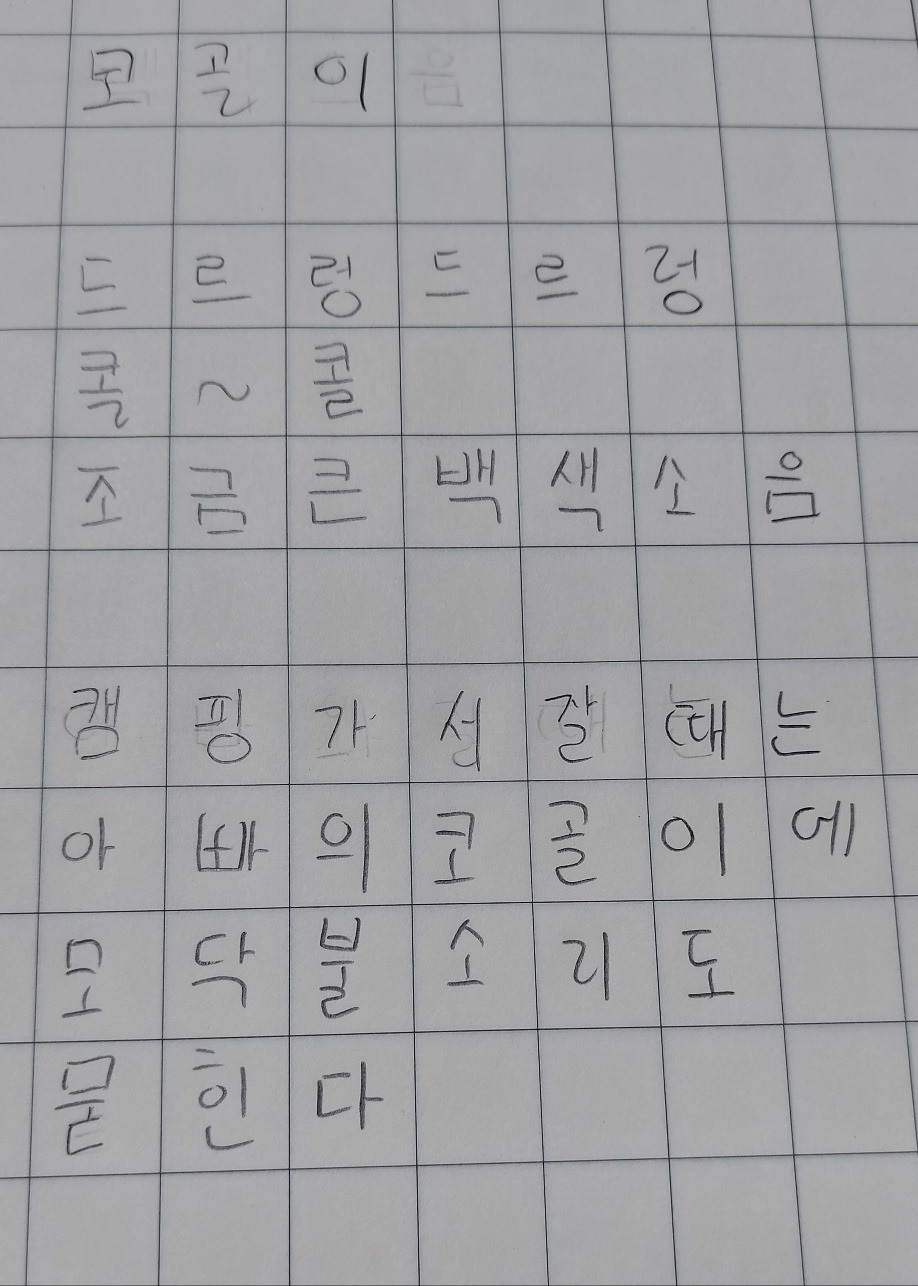 코골이
드르렁드르렁
콜~콜
조금큰백색소음
캠핑가서잘때는
아빠의코골이에
모닥불소리도
묻힌다